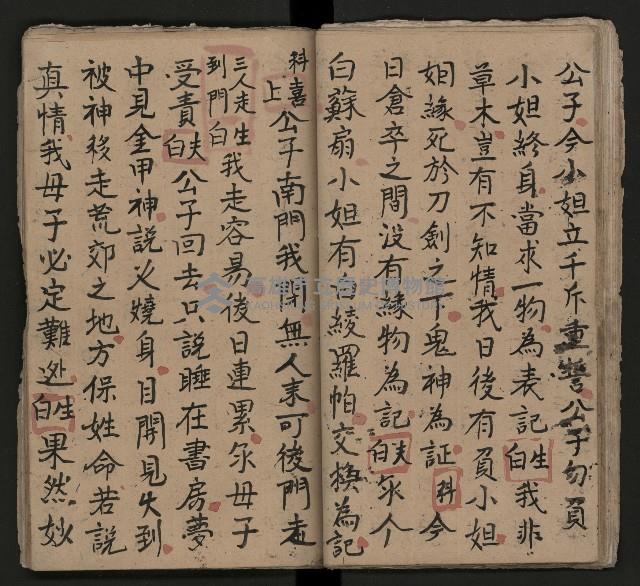 公子今小姐立千斤重誓公子勿負
小姐終身當求一物為表記生白我非
草木豈有不知情我日後有負小姐
姻緣死於刀劍之下鬼神為証科今
日倉卒之間没有緣物為記夫白尔个
白蘇扇小姐有白綾羅帕交換為記
科喜上公子南門我閉無人末可後門走
三人走到門生白我走容易後日連累尔母子
受責夫白公子回去只說睡在書房夢
中見金甲神說父燒身目開見失到
被神移走荒郊之地方保姓命若說
真情我母子必定難迯生白果然妙
高雄市立歷史博物館